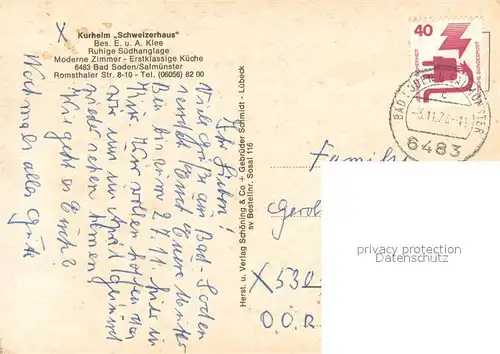 X
Kurheim „Schweizerhaus"
Bes. E. u. A. Klee
Ruhige Südhanglage
Moderne Zimmer - Erstklassige Küche
6483 Bad Soden/Salmünster
Romsthaler Str. 8-10 - Tel. (06056) 82 00
40
BAD SODEN-SALMÜNSTER
-3.11.74-11
c
6483
Ihr Lieben!
Viele Grüße aus Bad-Soden
sendet Euch Euere
Bin bis zum 27.11. hier in
Kur. Wir wollen hoffen das
wir uns im April gesund
wieder sehen können
Wie geht es Euch?
Nochmals alles Gute
Herst. u. Verlag Schöning & Co + Gebrüder Schmidt - Lübeck
sv Bestellnr. Sosal 116
Familie
Gerol
X530
D.D.R
privacy protection
Datenschutz